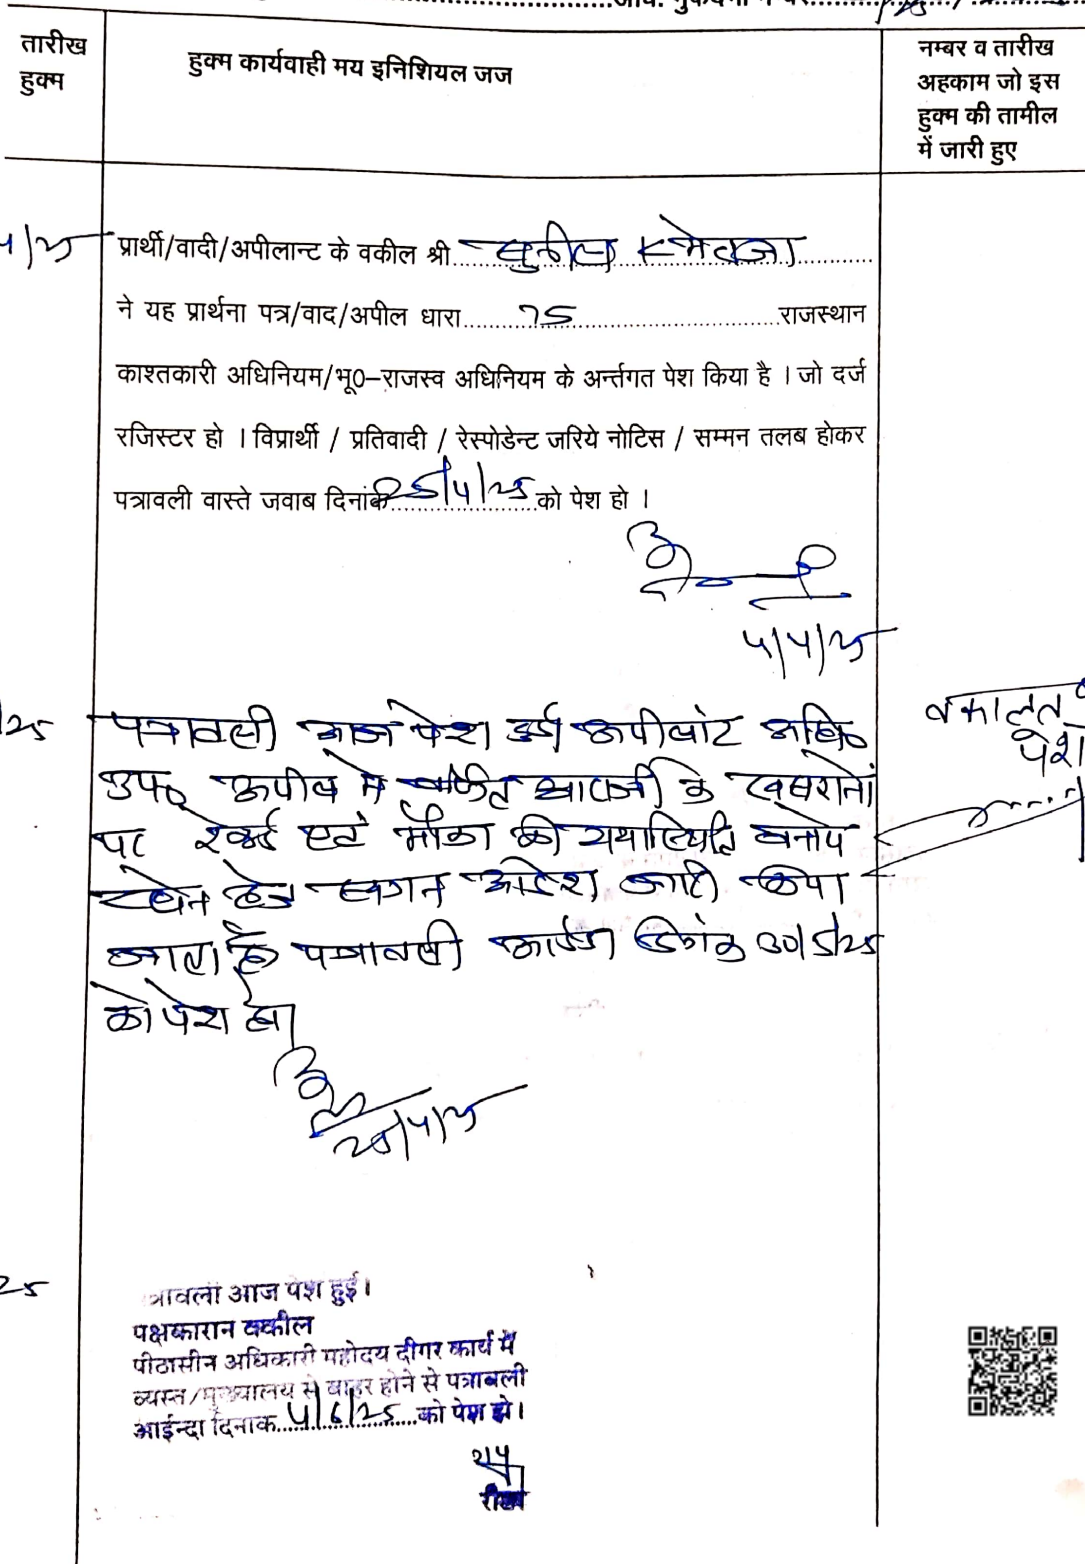 तारीख
हुक्म
हुक्म कार्यवाही मय इनिशियल जज
नम्बर व तारीख
अहकाम जो इस
हुक्म की तामील
में जारी हुए
4/25
प्रार्थी/वादी/अपीलान्ट के वकील श्री
ने यह प्रार्थना पत्र/वाद/अपील धारा 75 राजस्थान
काश्तकारी अधिनियम/भू0-राजस्व अधिनियम के अर्न्तगत पेश किया है । जो दर्ज
रजिस्टर हो । विप्रार्थी / प्रतिवादी / रेस्पोडेन्ट जरिये नोटिस / सम्मन तलब होकर
पत्रावली वास्ते जवाब दिनांक 25/4/25 को पेश हो ।
4/4/25
/25
पत्रावली आज पेश हुई अपीलांट अधि०
उप० अपील मे वर्णित आराजी के खसरानों
पर रेकर्ड एवं मौका की यथास्थिति बनाये
रखने हेतु स्थगन आदेश जारी किया
जाता है पत्रावली आईन्दा दिनांक 30/5/25
को पेश हो।
25/4/25
वकालत
पेश
25
त्रावली आज पेश हुई।
पक्षकारान वकील
पीठासीन अधिकारी महोदय दीगर कार्य में
व्यस्त/मुख्यालय से बाहर होने से पत्रावली
आईन्दा दिनाक 4/6/25 को पेश हो।
रीडर